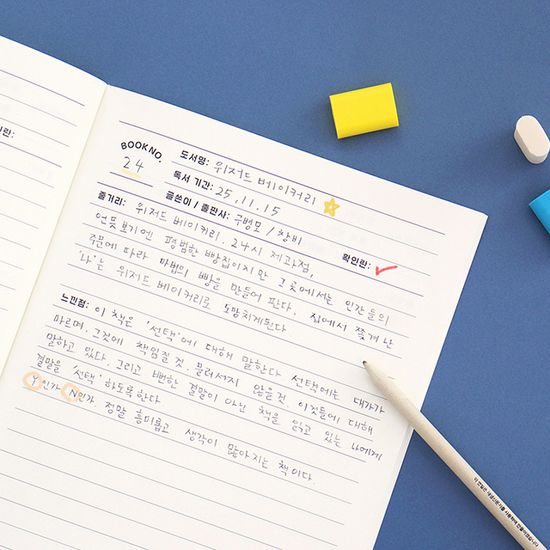 란:
BOOK NO.
24
도서명: 위저드 베이커리
독서 기간: 25.11.15
글쓴이 / 출판사: 구병모 / 창비
확인란:
줄거리: 위저드 베이커리. 24시 제과점,
언뜻 보기엔 평범한 빵집이지만 그곳에서는 인간들의
주문에 따라 마법의 빵을 만들어 판다. 집에서 쫓겨난
'나'는 위저드 베이커리로 도망치게된다
느낀점: 이 책은 '선택'에 대해 말한다. 선택에는 대가가
따르며, 그것에 책임질 것. 물러서지 않을 것. 이것들에 대해
말하고 있다. 그리고 뻔한 결말이 아닌 책을 읽고 있는 나에게
결말을 '선택'하도록한다
Y인가 N인가 정말 흥미롭고 생각이 많아지는 책이다.